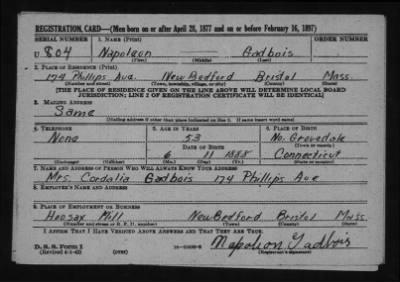 REGISTRATION CARD—(Men born on or after April 28, 1877 and on or before February 16, 1897)
SERIAL NUMBER 1. NAME (Print) ORDER NUMBER
U 804 Napoleon Gadbois
(First) (Middle) (Last)
2. PLACE OF RESIDENCE (Print)
174 Phillips Ave. New Bedford Bristol Mass.
(Number and street) (Town, township, village, or city) (County) (State)
[THE PLACE OF RESIDENCE GIVEN ON THE LINE ABOVE WILL DETERMINE LOCAL BOARD
JURISDICTION; LINE 2 OF REGISTRATION CERTIFICATE WILL BE IDENTICAL]
3. MAILING ADDRESS
Same
[Mailing address if other than place indicated on line 2. If same insert word same]
4. TELEPHONE 5. AGE IN YEARS 6. PLACE OF BIRTH
None 53 No. Grovedale
DATE OF BIRTH (Town or county)
6 11 1888 Connecticut
(Exchange) (Number) (Mo.) (Day) (Yr.) (State or country)
7. NAME AND ADDRESS OF PERSON WHO WILL ALWAYS KNOW YOUR ADDRESS
Mrs. Cordalia Gadbois 174 Phillips Ave
8. EMPLOYER'S NAME AND ADDRESS
9. PLACE OF EMPLOYMENT OR BUSINESS
Hoosax Mill New Bedford Bristol Mass.
(Number and street or R. F. D. number) (Town) (County) (State)
I AFFIRM THAT I HAVE VERIFIED ABOVE ANSWERS AND THAT THEY ARE TRUE.
D. S. S. Form 1
(Revised 4-1-42) (over) Napoleon Gadbois
(Registrant's signature)